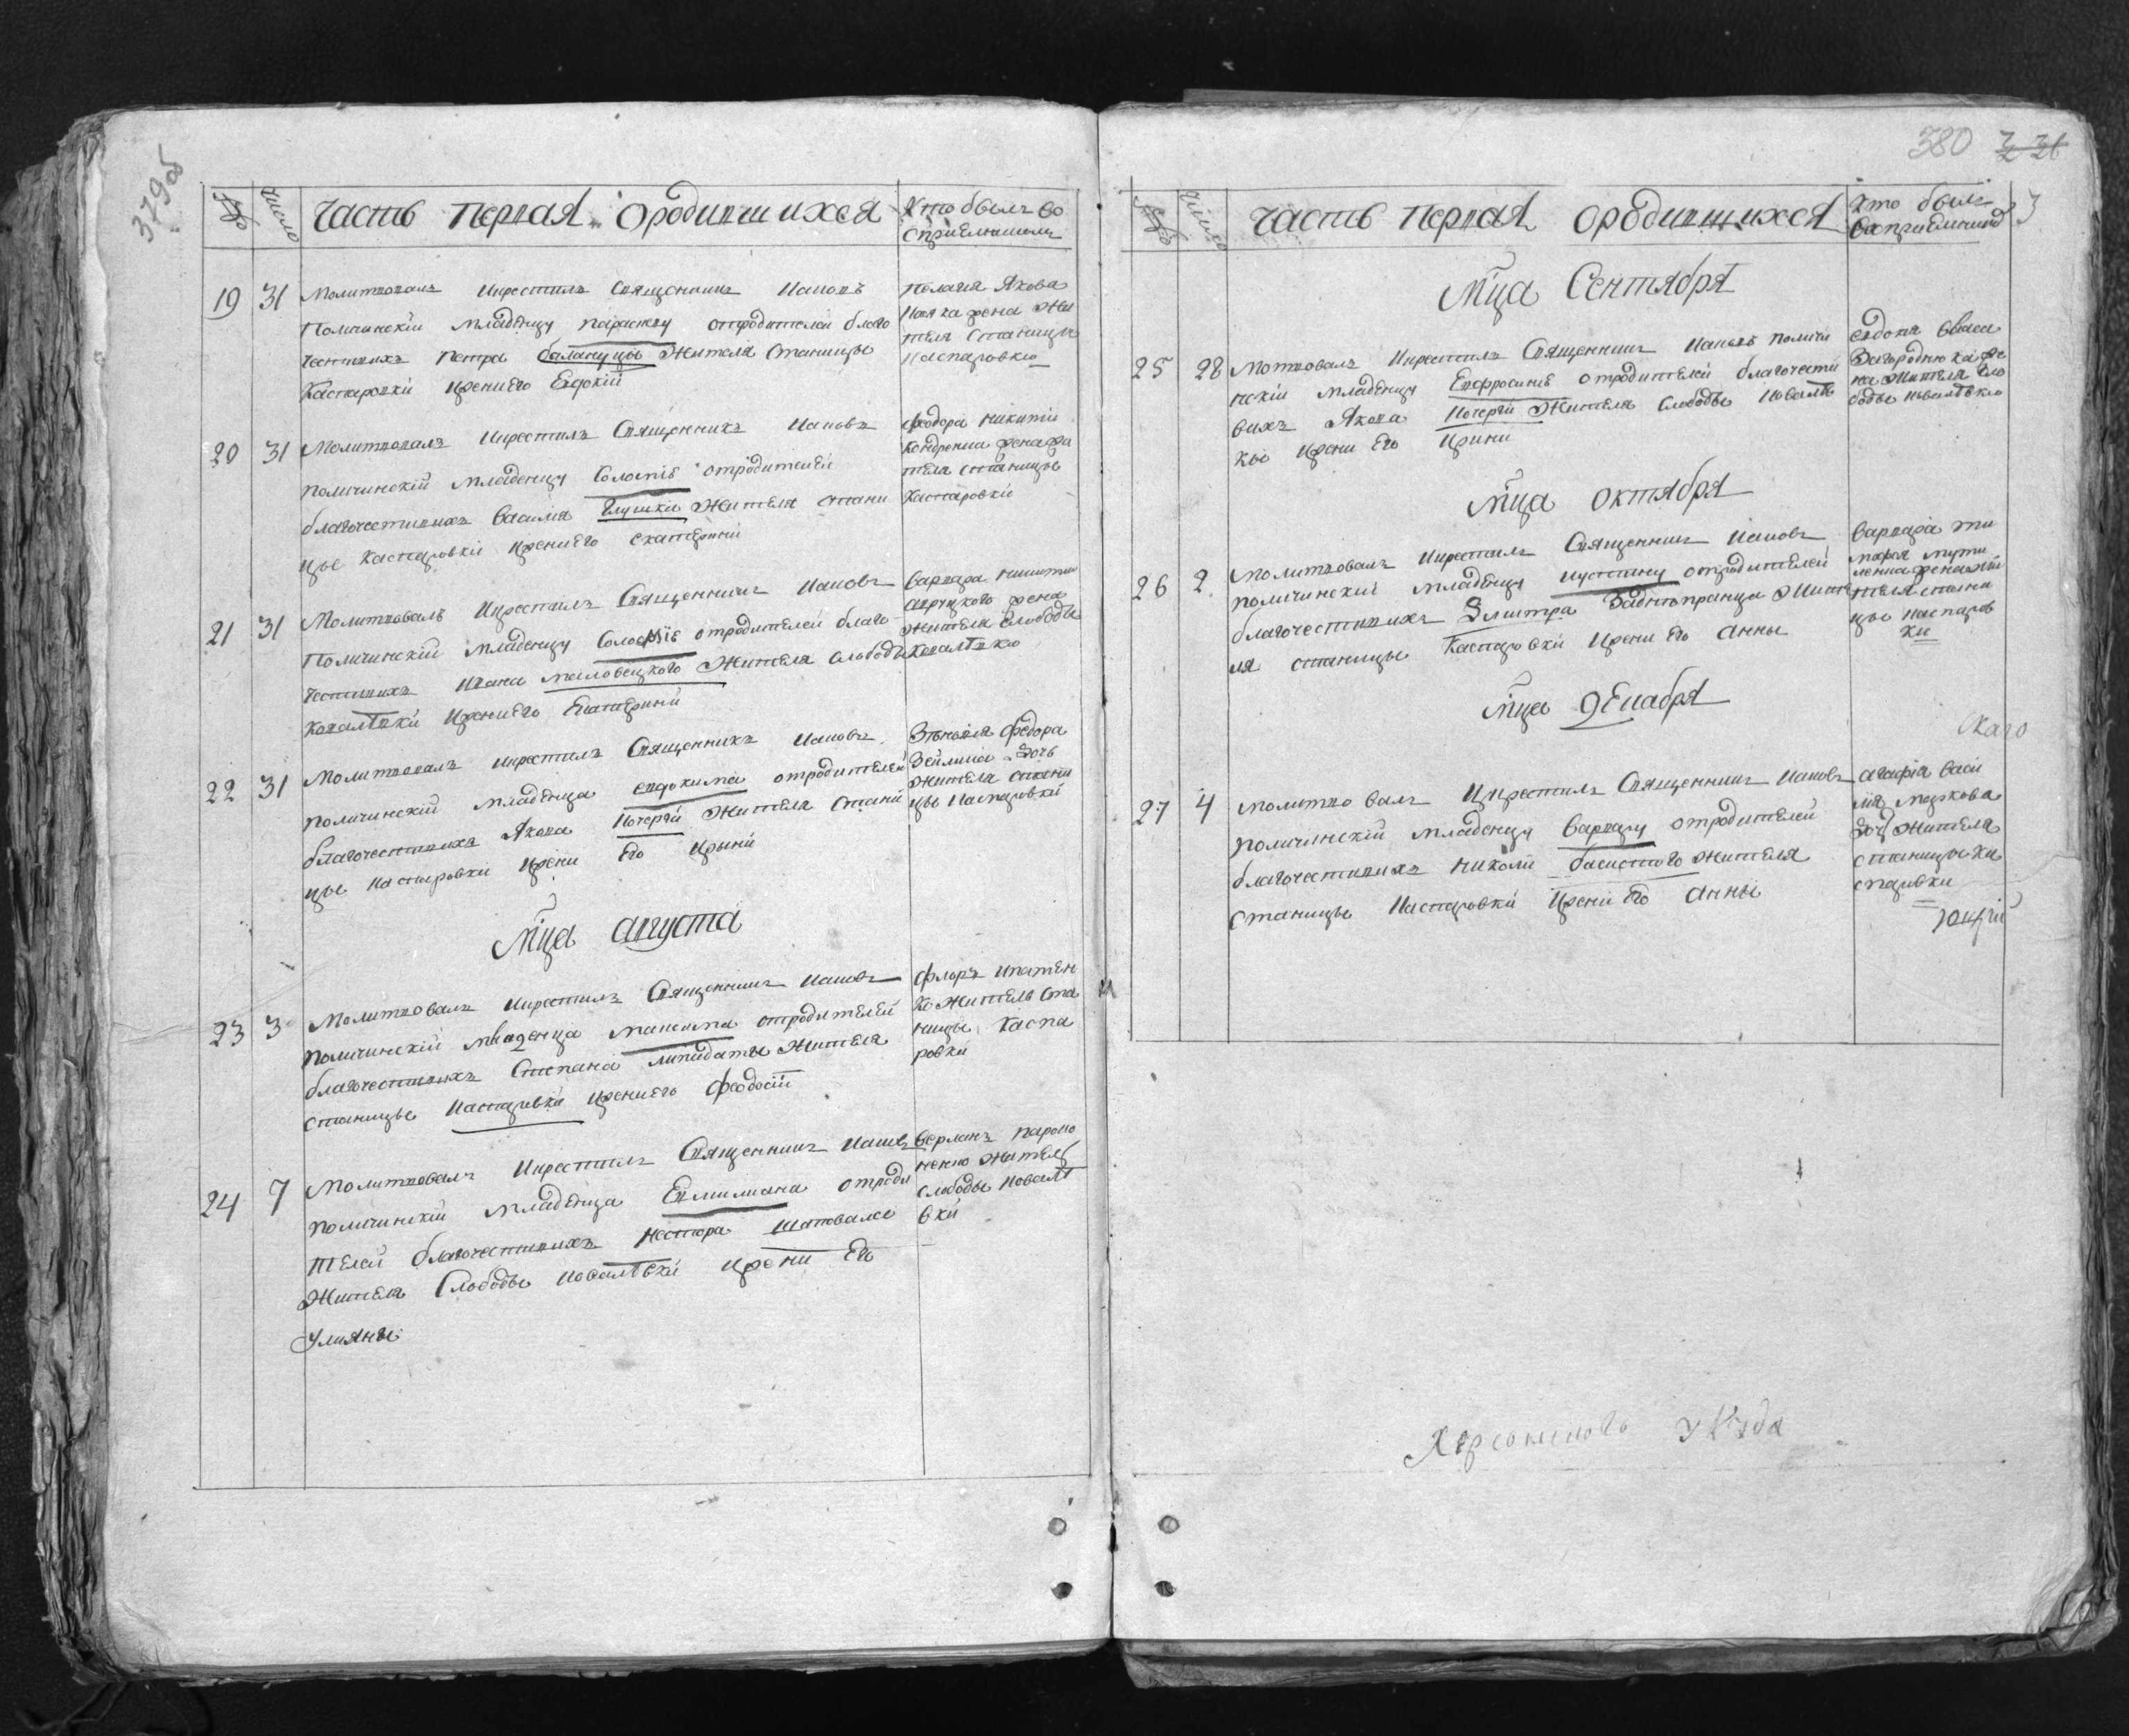 379 об
№ Число Часть первая ородившихся Кто былъ во
сприемником
19 31 Молитвовалъ икрестилъ Священникъ Иаковъ
Поличинскїй младенцу параскеву отродителей благо
честивихъ петра балануци Жителя Станицы
Каспаровкй иЖени его Евдокїй
пелагия Якова
жена Жи
теля Станицы
Каспаровки
20 31 Молитвовалъ икрестилъ Священникъ Иаковъ
поличинскїй младенцу Соломïе отродителей
благочестивихъ Василия Глушки Жителя стани
цы Каспаровкй иЖени его екатерини
феодора никити
жена жи
теля станицы
Каспаровкй
21 31 Молитвовалъ икрестилъ Священникъ Иаковъ
Поличинскїй младенцу Соломïе отродителей благо
честивихъ Ивана миловецкого Жителя Слободы
Ковалѣвкй иЖени его Екатерини
варвара никити
жена
Жителя Слободы
Ковалѣвки
22 31 Молитвовалъ икрестилъ Священникъ Иаковъ
поличинскїй младенца евдокима отродителей
благочестивихъ Якова Кочергй Жителя Стани
цы Каспаровки иЖени Его Ирини
Зѣновия Федора
дочь
Жителя стани
цы Каспаровкй
Мца августа
23 3 Молитвовалъ икрестилъ Священникъ Иаковъ
поличинскїй младенца максима отродителей
благочестивихъ Степана липидаты Жителя
станицы Каспаровки иЖени его феодосїй
флоръ игнатен
ко Житель Ста
ницы Каспа
ровкй
24 7 Молитвовалъ икрестилъ Священникъ Иаковъ
поличинскїй младенца Емилиана отроди
телей благочестивихъ нестора шаповала
Жителя Слободы Ковалѣвкй иЖени Его
Улияны
Житель
слободы Ковалѣ
вкй
380
№ Число Часть первая ородившихся Кто былъ
восприемникъ
Мца Сентября
25 28 Мотвовалъ икрестилъ Священникъ Иаковъ поличи
нскїй младенцу Евфросинïе отродителей благочести
вихъ Якова Кочергй Жителя Слободы Ковалѣв
кы иЖени Его Ирини
евдокия
Загородню ка же
на Жителя Сло
боды Ковалѣвки
Мца октября
26 2 молитвовалъ икрестилъ Священникъ Иаковъ
поличинскїй младенцу иустину отродителей
благочестивихъ Дмитра Заднепранца Жите
ля станицы Каспаровкй иЖени Его Анны
варвара ти
мофея
жена жи
теля стани
цы каспаров
ки
Мца декабря
27 4 молитвовалъ икрестилъ Священникъ Иаковъ
поличинскїй младенцу Варвару отродителей
благочестивихъ николи басистого Жителя
Станицы Каспаровкй иЖени Его Анны
агафïя васи
лия маркова
дочь Жителя
станицы Ка
спаровки
Херсонского уѣзда